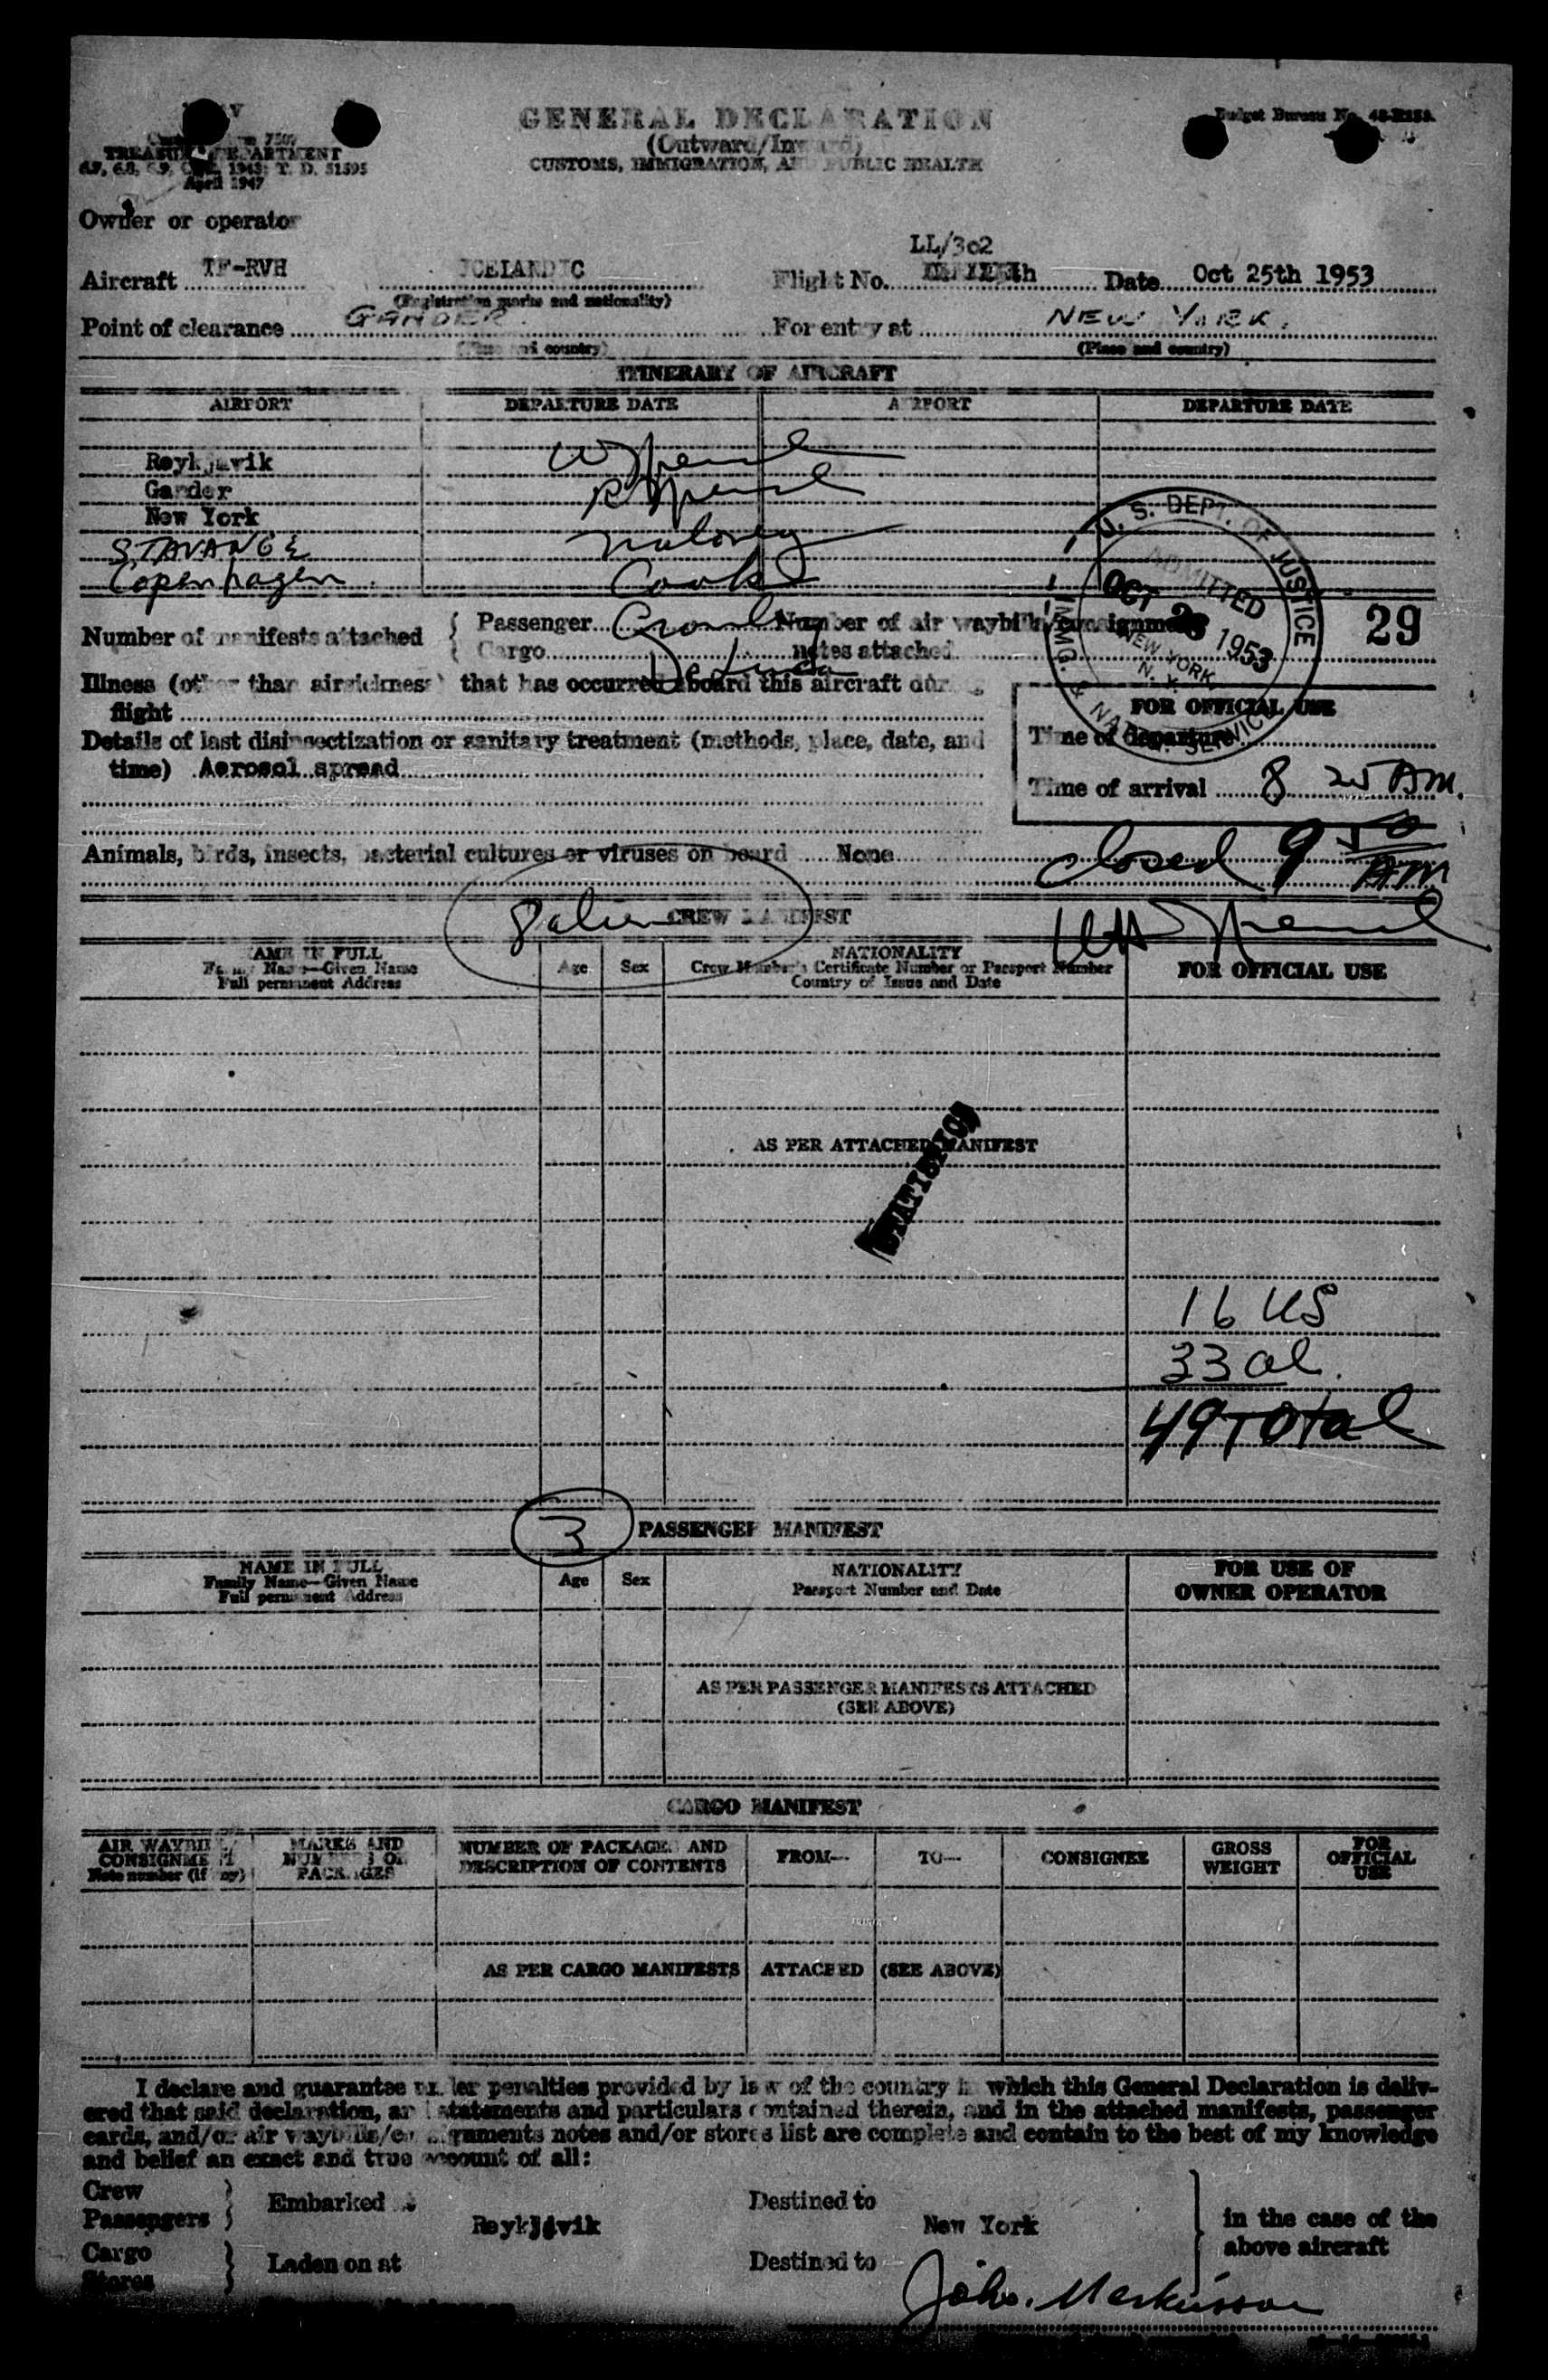 GENERAL DECLARATION
Budget Bureau No.
(Outward/Inward)
TREASURY DEPARTMENT
CUSTOMS, IMMIGRATION, AND PUBLIC HEALTH
T. D. 51595
April 1947
Owner or operator
LL/302
Aircraft TF-RVH ICELANDIC Flight No. Date Oct 25th 1953
(Registration marks and nationality)
Point of clearance GANDER For entry at NEW YORK.
(Place and country) (Place and country)
ITINERARY OF AIRCRAFT
AIRPORT DEPARTURE DATE AIRPORT DEPARTURE DATE
Reykjavik
Gander
New York
STAVANGE
Copenhagen
Maloney
Cook
U. S. DEPT. OF JUSTICE
ADMITTED
OCT 1953
NEW YORK,
N. Y.
IMMIG. & NATZ. SERVICE
29
Number of manifests attached { Passenger Number of air waybills/consignment
Cargo notes attached
De Luca
Illness (other than airsickness) that has occurred aboard this aircraft during
flight
FOR OFFICIAL USE
Details of last disinsectization or sanitary treatment (methods, place, date, and
Time of departure
time) Aerosol spread
Time of arrival 8 25 AM.
Animals, birds, insects, bacterial cultures or viruses on board None
closed 9 50 AM
CREW MANIFEST
NAME IN FULL
Family Name—Given Name
Full permanent Address
Age Sex
NATIONALITY
Crew Member's Certificate Number or Passport Number
Country of Issue and Date
FOR OFFICIAL USE
AS PER ATTACHED MANIFEST
16 US
33 al.
49 Total
3 PASSENGER MANIFEST
NAME IN FULL
Family Name—Given Name
Full permanent Address
Age Sex
NATIONALITY
Passport Number and Date
FOR USE OF
OWNER OPERATOR
AS PER PASSENGER MANIFESTS ATTACHED
(SEE ABOVE)
CARGO MANIFEST
AIR WAYBILL/
CONSIGNMENT
Note number (if any)
MARKS AND
NUMBERS ON
PACKAGES
NUMBER OF PACKAGES AND
DESCRIPTION OF CONTENTS
FROM— TO— CONSIGNEE
GROSS
WEIGHT
FOR
OFFICIAL
USE
AS PER CARGO MANIFESTS ATTACHED (SEE ABOVE)
I declare and guarantee under penalties provided by law of the country in which this General Declaration is deliv-
ered that said declaration, and statements and particulars contained therein, and in the attached manifests, passenger
cards, and/or air waybills/consignments notes and/or stores list are complete and contain to the best of my knowledge
and belief an exact and true account of all:
Crew
Passengers } Embarked Reykjavik Destined to New York } in the case of the
above aircraft
Cargo
Stores } Laden on at Destined to
Joh. Markússon